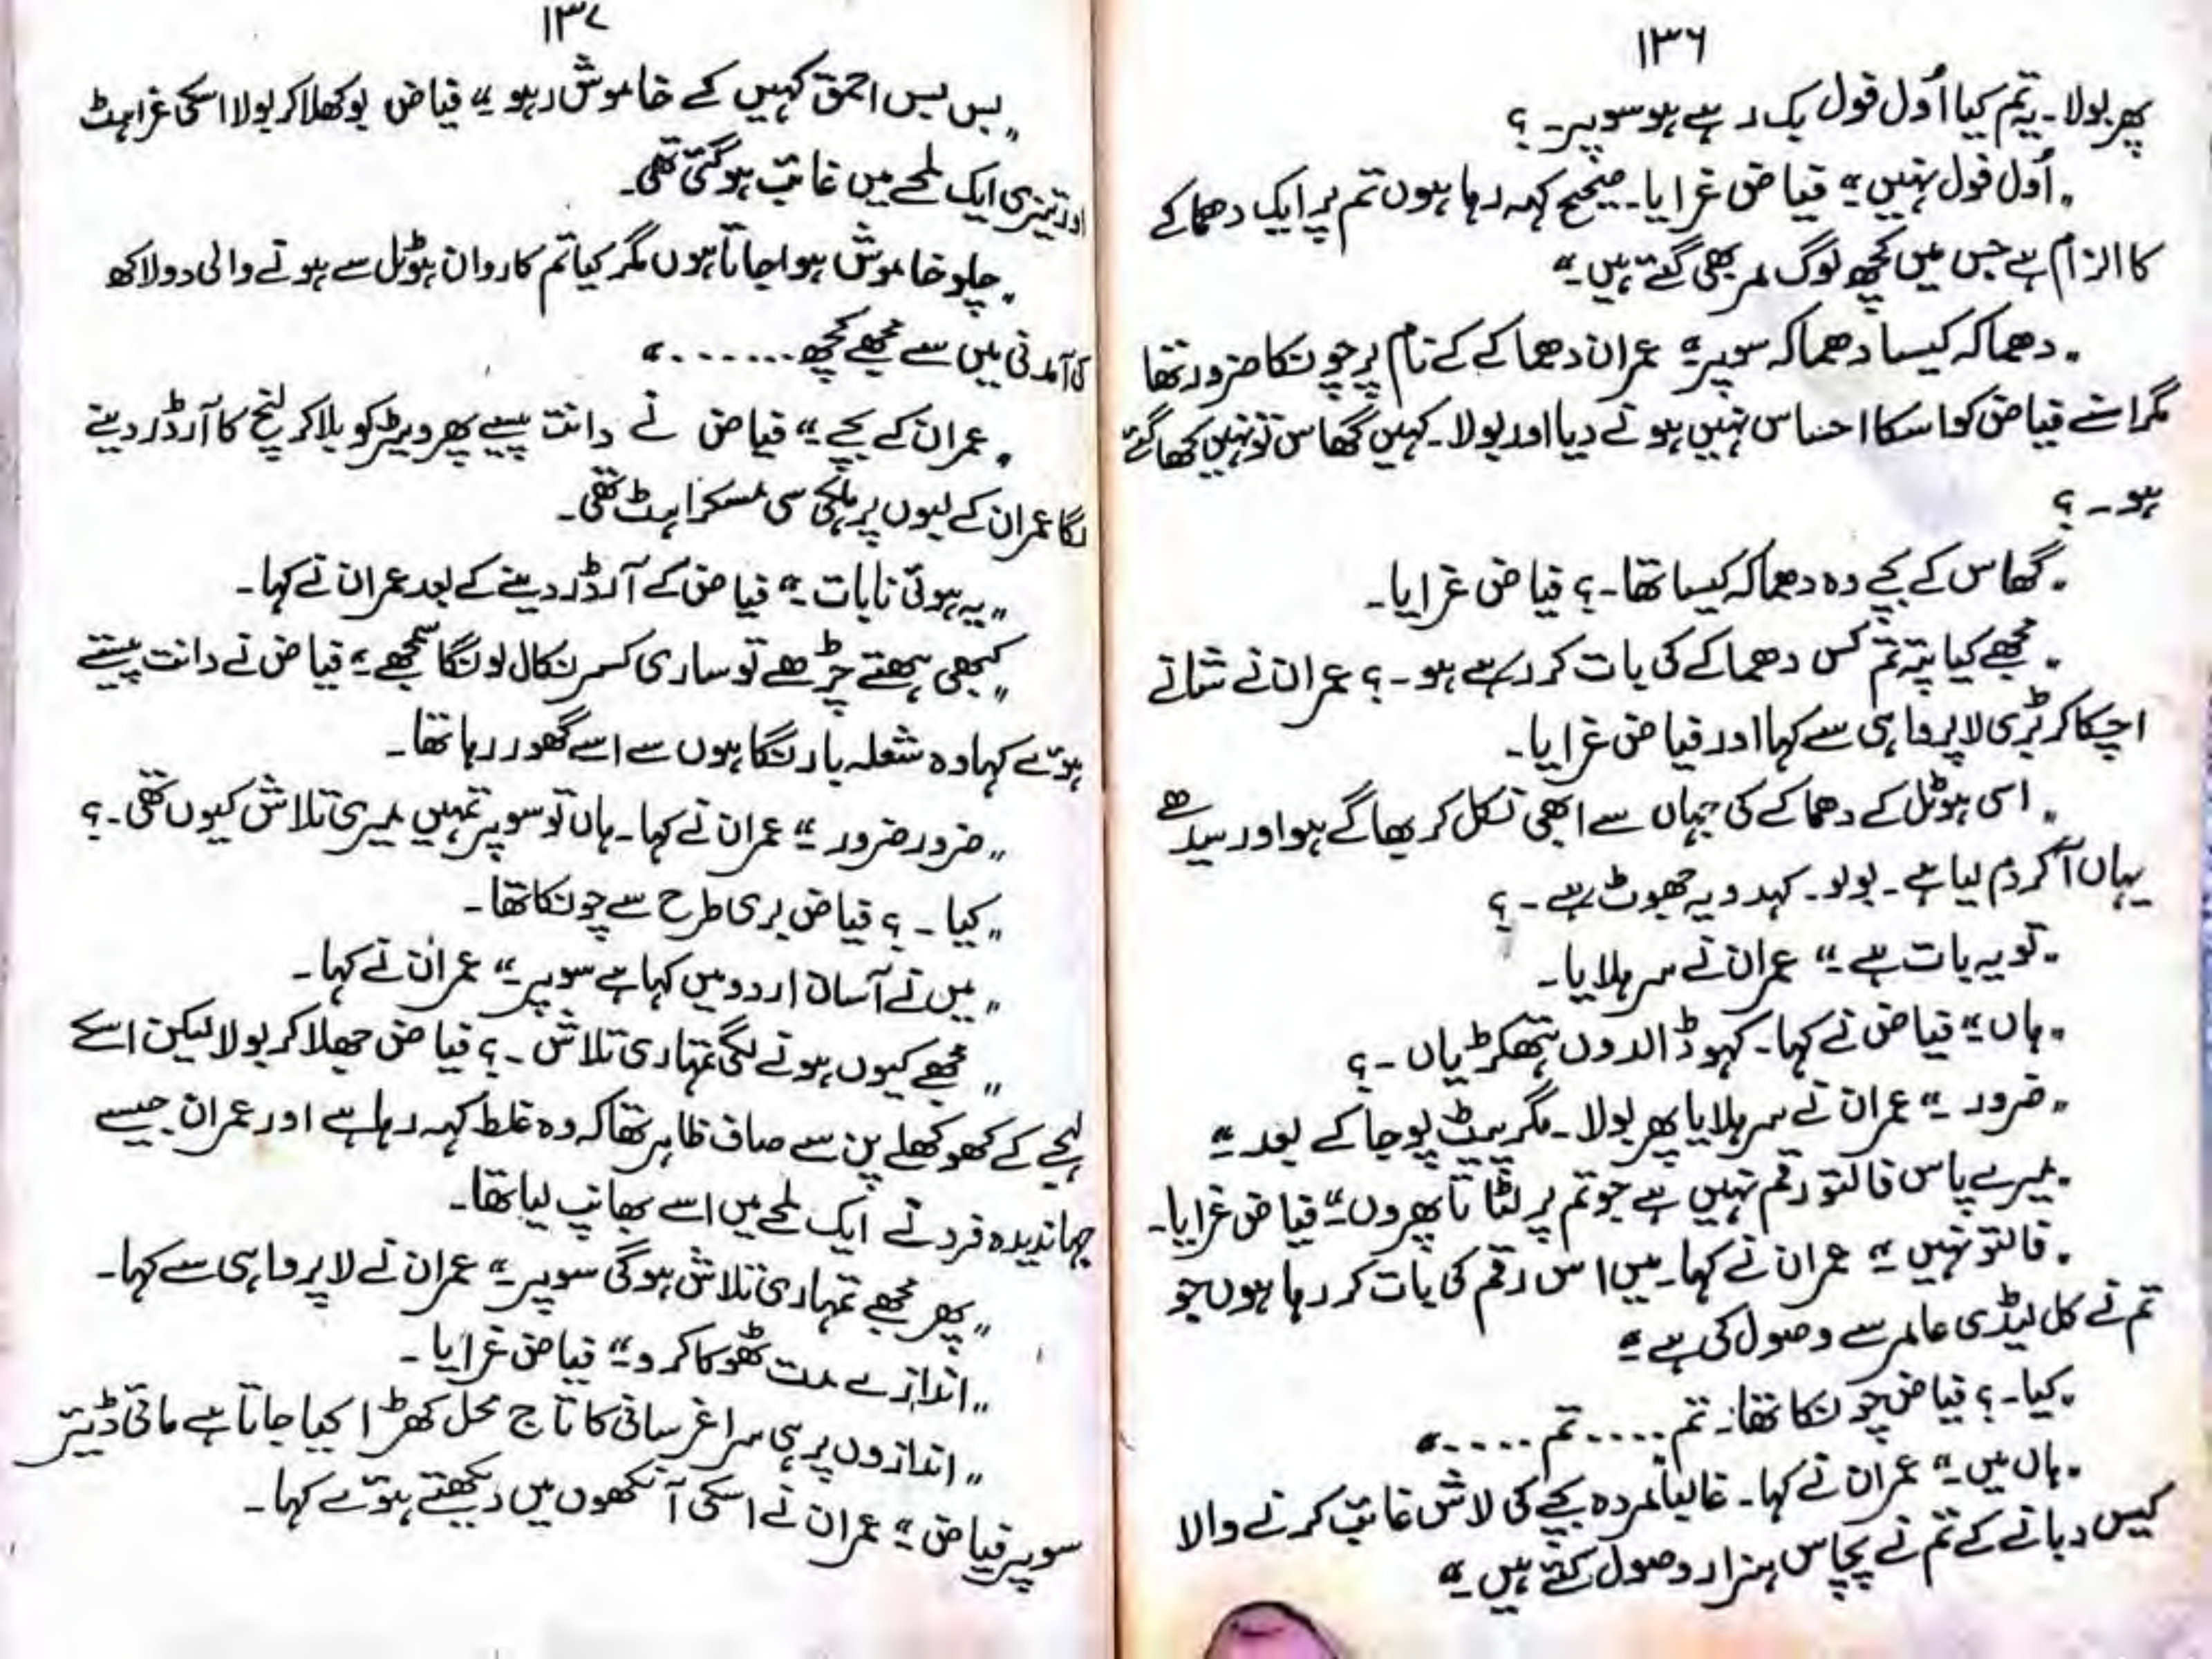 ١٣٦
پھر بولا۔ یہ تم کیا اُول فول بک رہے ہو سوپر۔ ؟
"اُول فول نہیں۔" فیاض غرایا۔ صحیح کہہ رہا ہوں تم پر ایک دھماکے
کا الزام ہے جس میں کچھ لوگ مر بھی گئے ہیں۔"
"دھماکہ کیسا دھماکہ سوپر۔" عمران دھماکے کے نام پر چونکا ضرور تھا
مگر اسنے فیاض کو اسکا احساس نہیں ہونے دیا اور بولا۔ کہیں گھاس تو نہیں کھا گئے
ہو۔ ؟
"گھاس کے بچے وہ دھماکہ کیسا تھا۔ ؟ فیاض غرایا۔
"مجھے کیا پتہ تم کس دھماکے کی بات کر رہے ہو۔ ؟ عمران نے شانے
اچکا کر بڑی لاپرواہی سے کہا اور فیاض غرایا۔
"اسی ہوٹل کے دھماکے کی جہاں سے ابھی نکل کر بھاگے ہو اور سیدھے
یہاں آکر دم لیا ہے۔ بولو۔ کہدو یہ جھوٹ ہے۔ ؟
"تو یہ بات ہے۔" عمران نے سر ہلایا۔
"ہاں۔" فیاض نے کہا۔ کہو ڈالدوں ہتھکڑیاں۔ ؟
"ضرور۔" عمران نے سر ہلایا پھر بولا۔ مگر پیٹ پوجا کے بعد۔"
"میرے پاس فالتو رقم نہیں ہے جو تم پر لٹاتا پھروں۔" فیاض غرایا۔
"فالتو نہیں۔" عمران نے کہا۔ میں اس رقم کی بات کر رہا ہوں جو
تم نے کل لیڈی عالمر سے وصول کی ہے۔"
"کیا۔ ؟ فیاض چونکا تھا۔ تم ..... تم ....."
"ہاں میں۔" عمران نے کہا۔ غالباً مردہ بچے کی لاش غائب کرنے والا
کیس دبانے کے تم نے پچاس ہزار وصول کئے ہیں۔"
١٣٧
"بس بس احمق کہیں کے خاموش رہو۔" فیاض بوکھلا کر بولا اسکی غراہٹ
اور تیزی ایک لمحے میں غائب ہو گئی تھی۔
"چلو خاموش ہوا جاتا ہوں مگر کیا تم کاروان ہوٹل سے ہونے والی دو لاکھ
کی آمدنی میں سے مجھے کچھ ......."
"عمران کے بچے۔" فیاض نے دانت پیسے پھر ویٹر کو بلا کر لنچ کا آرڈر دینے
لگا عمران کے لبوں پر ہلکی سی مسکراہٹ تھی۔
"یہ ہوئی نا بات۔" فیاض کے آرڈر دینے کے بعد عمران نے کہا۔
"کبھی ہتھے چڑھے تو ساری کسر نکال لونگا سمجھے۔" فیاض نے دانت پیستے
ہوئے کہا وہ شعلہ بار نگاہوں سے اسے گھور رہا تھا۔
"ضرور ضرور۔" عمران نے کہا۔ ہاں تو سوپر تمہیں میری تلاش کیوں تھی۔ ؟
"کیا۔ ؟ فیاض بری طرح سے چونکا تھا۔
"میں نے آسان اردو میں کہا ہے سوپر۔" عمران نے کہا۔
"مجھے کیوں ہونے لگی تمہاری تلاش۔ ؟ فیاض جھلا کر بولا لیکن اسکے
لہجے کے کھوکھلے پن سے صاف ظاہر تھا کہ وہ غلط کہہ رہا ہے اور عمران جیسے
جہاندیدہ فرد نے ایک لمحے میں اسے بھانپ لیا تھا۔
"پھر مجھے تمہاری تلاش ہوگی سوپر۔" عمران نے لاپرواہی سے کہا۔
"اندازے مت ٹھوکا کرو۔" فیاض غرایا۔
"اندازوں پر ہی سراغرسانی کا تاج محل کھڑا کیا جاتا ہے مائی ڈئیر
سوپر فیاض۔" عمران نے اسکی آنکھوں میں دیکھتے ہوئے کہا۔